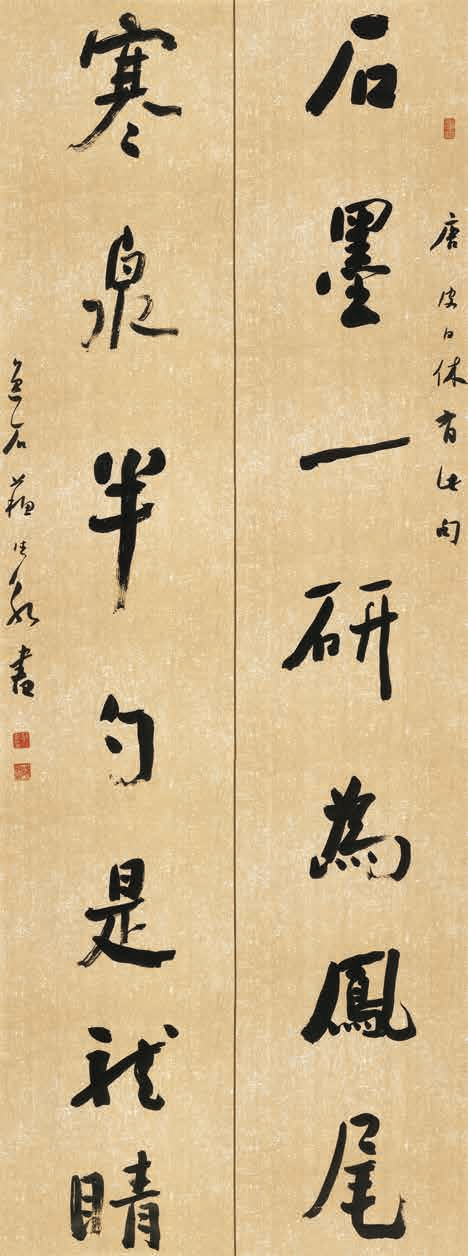 唐皮日休有此句
石墨一研為鳳尾
寒泉半勺是龍睛
石蘇書